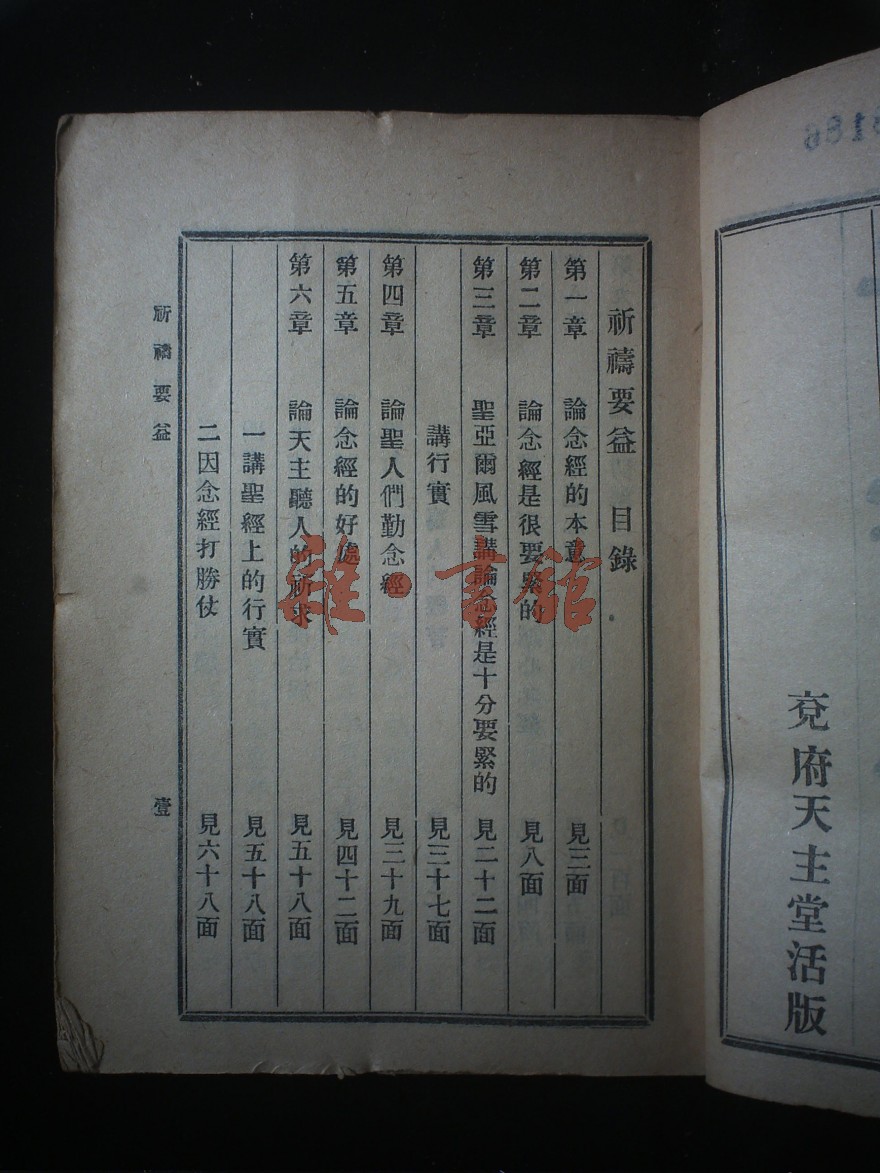 3186
兗府天主堂活版
祈禱要益 目錄
第一章 論念經的本意 見三面
第二章 論念經是很要緊的 見八面
第三章 聖亞爾風雪講論念經是十分要緊的 見二十二面
講行實 見三十七面
第四章 論聖人們勤念經 見三十九面
第五章 論念經的好處 見四十二面
第六章 論天主聽人的祈求 見五十八面
一講聖經上的行實 見五十八面
二因念經打勝仗 見六十八面
祈禱要益 壹
雜·書館